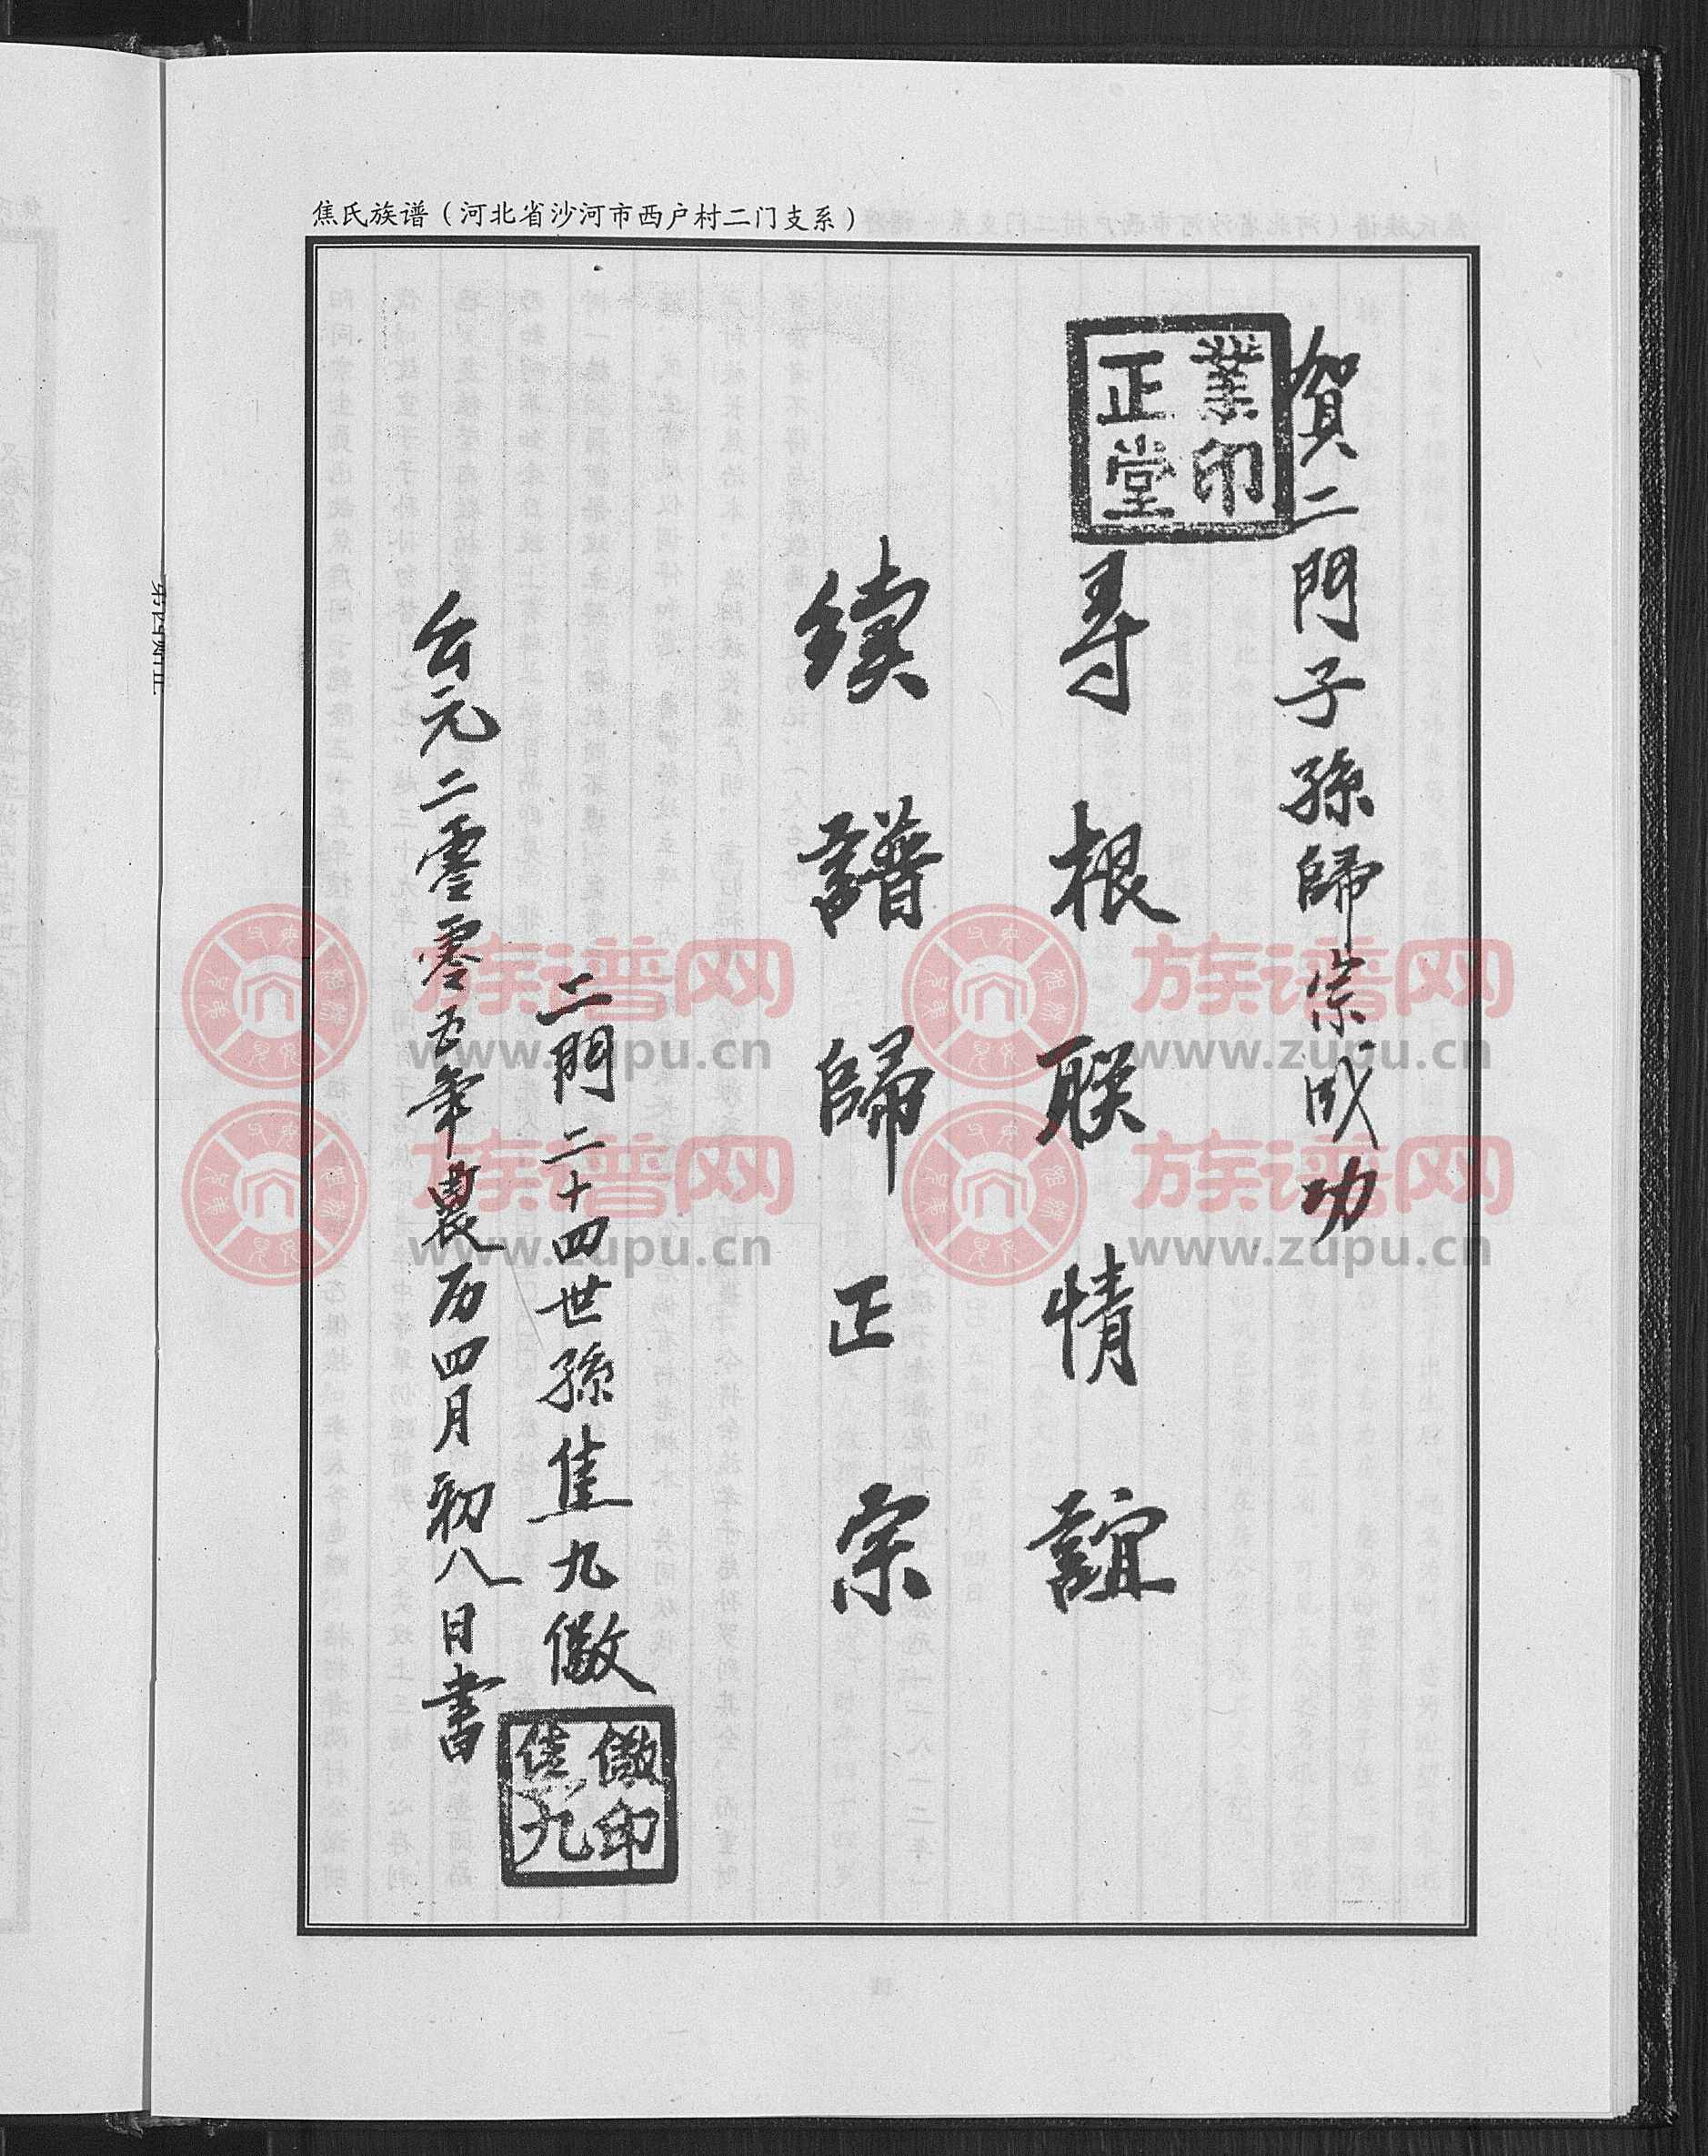 焦氏族谱（河北省沙河市西户村二门支系）
賀二門子孫歸宗成功
業印
正堂
尋根联情誼
续譜歸正宗
二門二十四世孫焦九儆
儆印
焦九
公元二零零五年農历四月初八日書
族谱网
www.zupu.cn
族谱网
www.zupu.cn
族谱网
www.zupu.cn
族谱网
www.zupu.cn